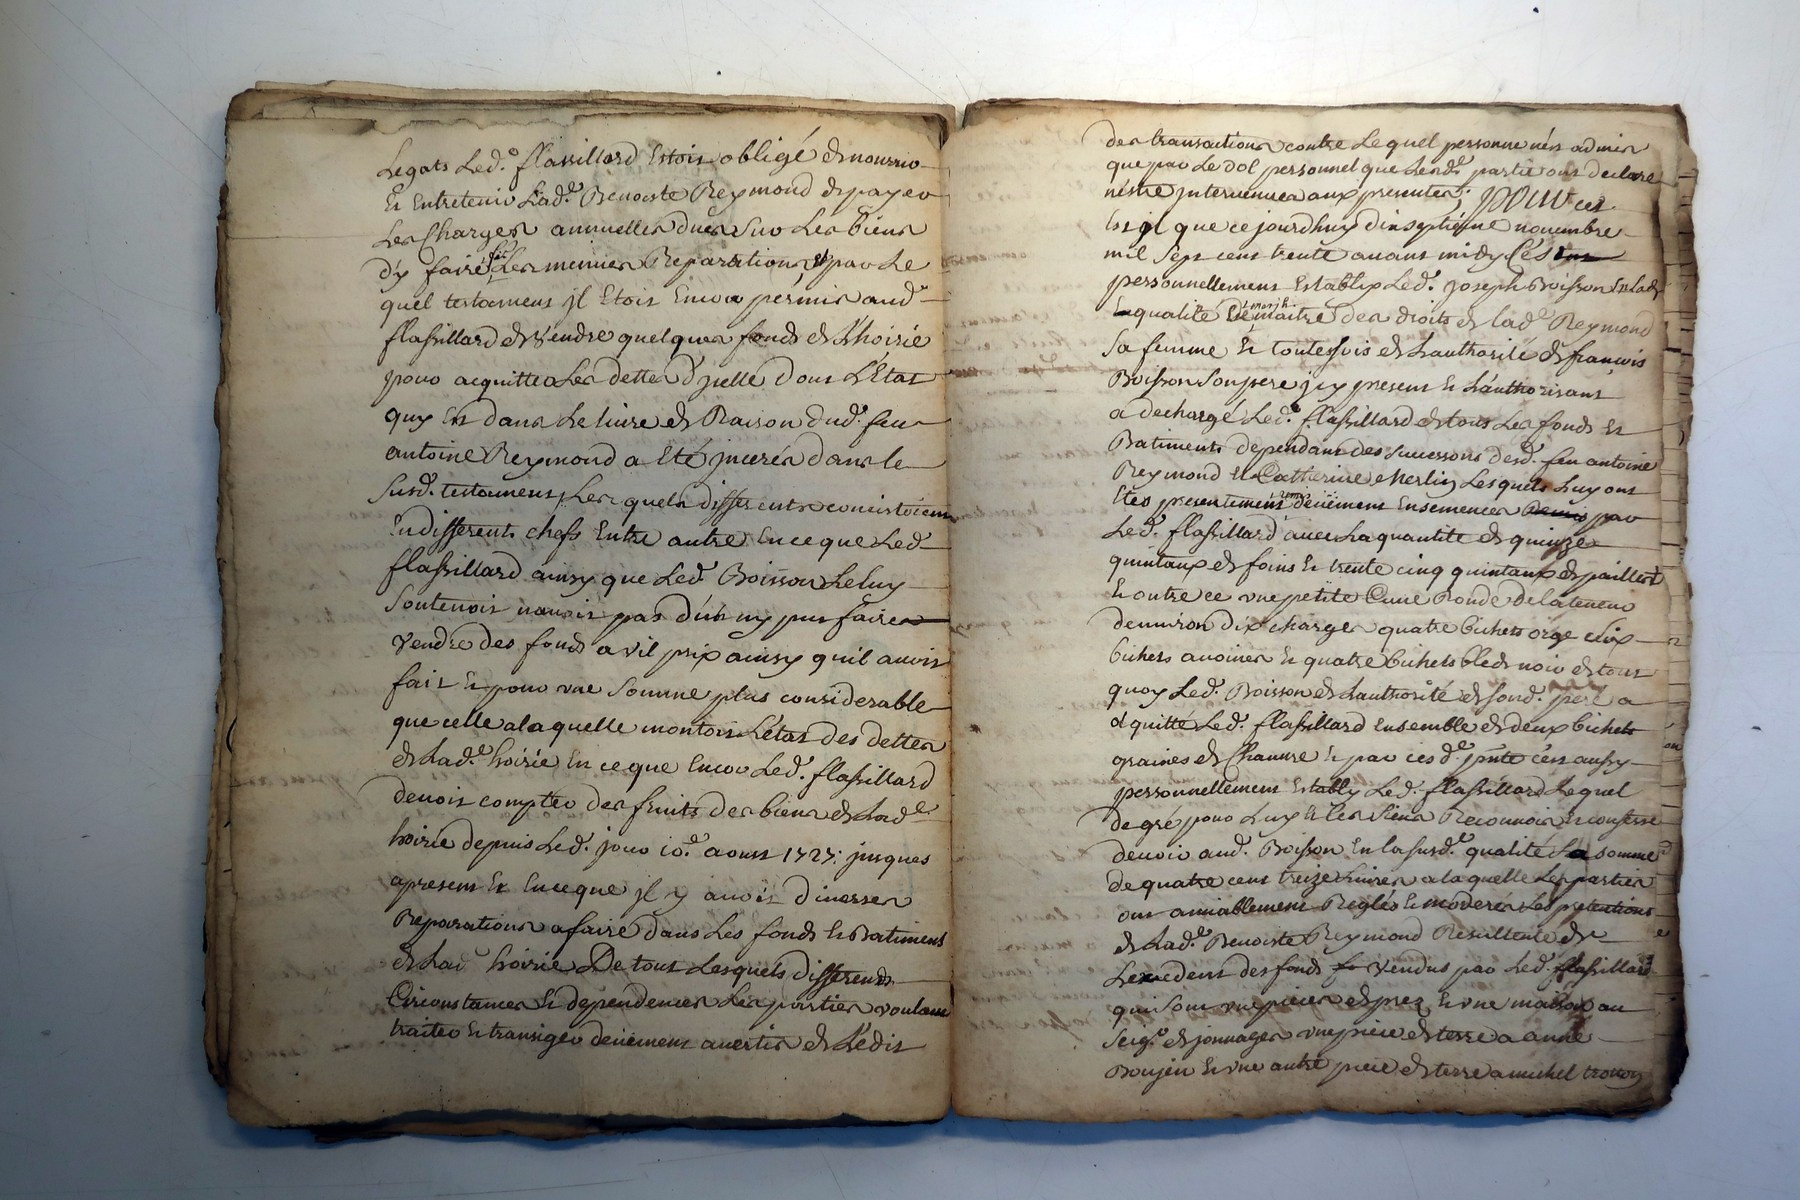 Legats Led.^t flassillard Estoit obligé de nourrir
Et Entretenir Lad.^e Benoiste Reymond de payer
Les Charges annuelles dues sur Les biens
d'y faire Les menües Reparations, et par Le
quel testament jl Etoit Encor permis aud.^t
flassillard de Vendre quelques fonds de L'hoirie
pour acquitter Les dettes d'jcelle dont L'Etat
quy Est dans Le livre de Raison dud.^t feu
antoine Reymond a Eté jnceréa dans le
Susd.^t testament, Les quels differents consistoient
En differents chefs Entre autre En ce que Led.^t
flassillard ainsy que Led.^t Boisson Le luy
Soutenoit n'avoit pas dub ny pus faire
Vendre des fonds a vil prix ainsy qu'il avoit
fait Et pour une Somme plus considerable
que celle a la quelle montoit L'état des dettes
de Lad.^e hoirie En ce que Encor Led.^t flassillard
devoit compter des fruits des biens de Lad.^e
hoirie depuis Led.^t jour 10.^e aoust 1727. jusques
apresent Et En ce que jl y avoit diverses
Reparations a faire dans Les fonds Et Batiments
de Lad.^e hoirie De tous Lesquels differends
Circonstances Et dependences Les parties voulant
traiter Et transiger deüement avertis de L'édit
des transactions contre Lequel personne n'est admis
que par Le dol personnel que Lesd.^e parties ont declaré
n'estre jntervenu aux presentes; POUR CE
Est jl que ce jourdhuy dixseptième novembre
mil Sept cent trente avant midy C'est
personnellement Establyx Led.^t joseph Boisson En Lad.^e
qualité de maitre des droits de Lad.^e Reymond
Sa femme Et toutesfois de L'authorité de francois
Boisson Son pere jcy present Et L'authorisant
a dechargé Led.^t flassillard de tous Les fonds Et
Batiments dependant des Successions desd.^t feu antoine
Reymond Et Catherine Merlin Les quels Luy ont
Eté presentement remis deüement Ensemencés par
Led.^t flassillard avec La quantité de quinze
quintaux de foins Et trente cinq quintaux de paille
Et outre ce une petite Cuve Ronde de la teneur
d'environ dix charges quatre bichets orge Six
bichets avoines Et quatre bichets bleds noir de tout
quoy Led.^t Boisson de L'authorité de Sond.^t pere a
quitté Led.^t flassillard Ensemble de deux bichets
graines de Chanvre Et par cesd.^e pñte c'est aussy
personnellement Establly Led.^t flassillard Lequel
de gré pour Luy Et Les Siens Reconnoit Et confesse
devoir aud.^t Boisson En la Susd.^e qualité La Somme
de quatre cent treize Livres a la quelle Les parties
ont amiablement Reglés Et moderer Les pretentions
de Lad.^e Benoiste Reymond Resultente de
L'excedent des fonds Vendus par Led.^t flassillard
qui Sont une pieces de prez Et une maison au
Seig.^r de jonnages une piece de terre a anne
Boujeu Et une autre piece de terre a michel